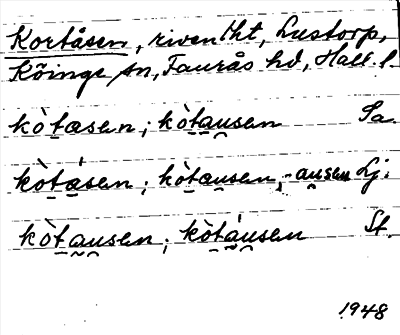 Kortåsen, riven lht, Lustorp,
Köinge sn, Faurås hd, Hall. l.
kòtasen; kòtausen Sa.
kòtásen; kòtausen, -ausen Lj.
kòtausen; kòtáusen St.
1948